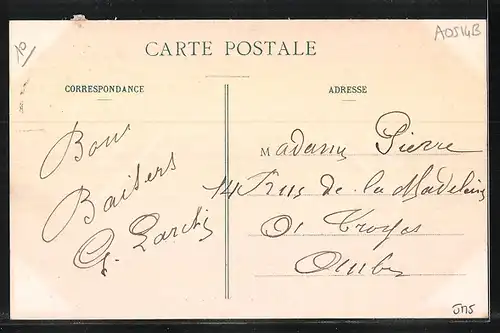 10
A0514B
CARTE POSTALE
CORRESPONDANCE
ADRESSE
Bons
Baisers
Madame Pierre
14 Rue de la Madeleine
à Troyes
Aube